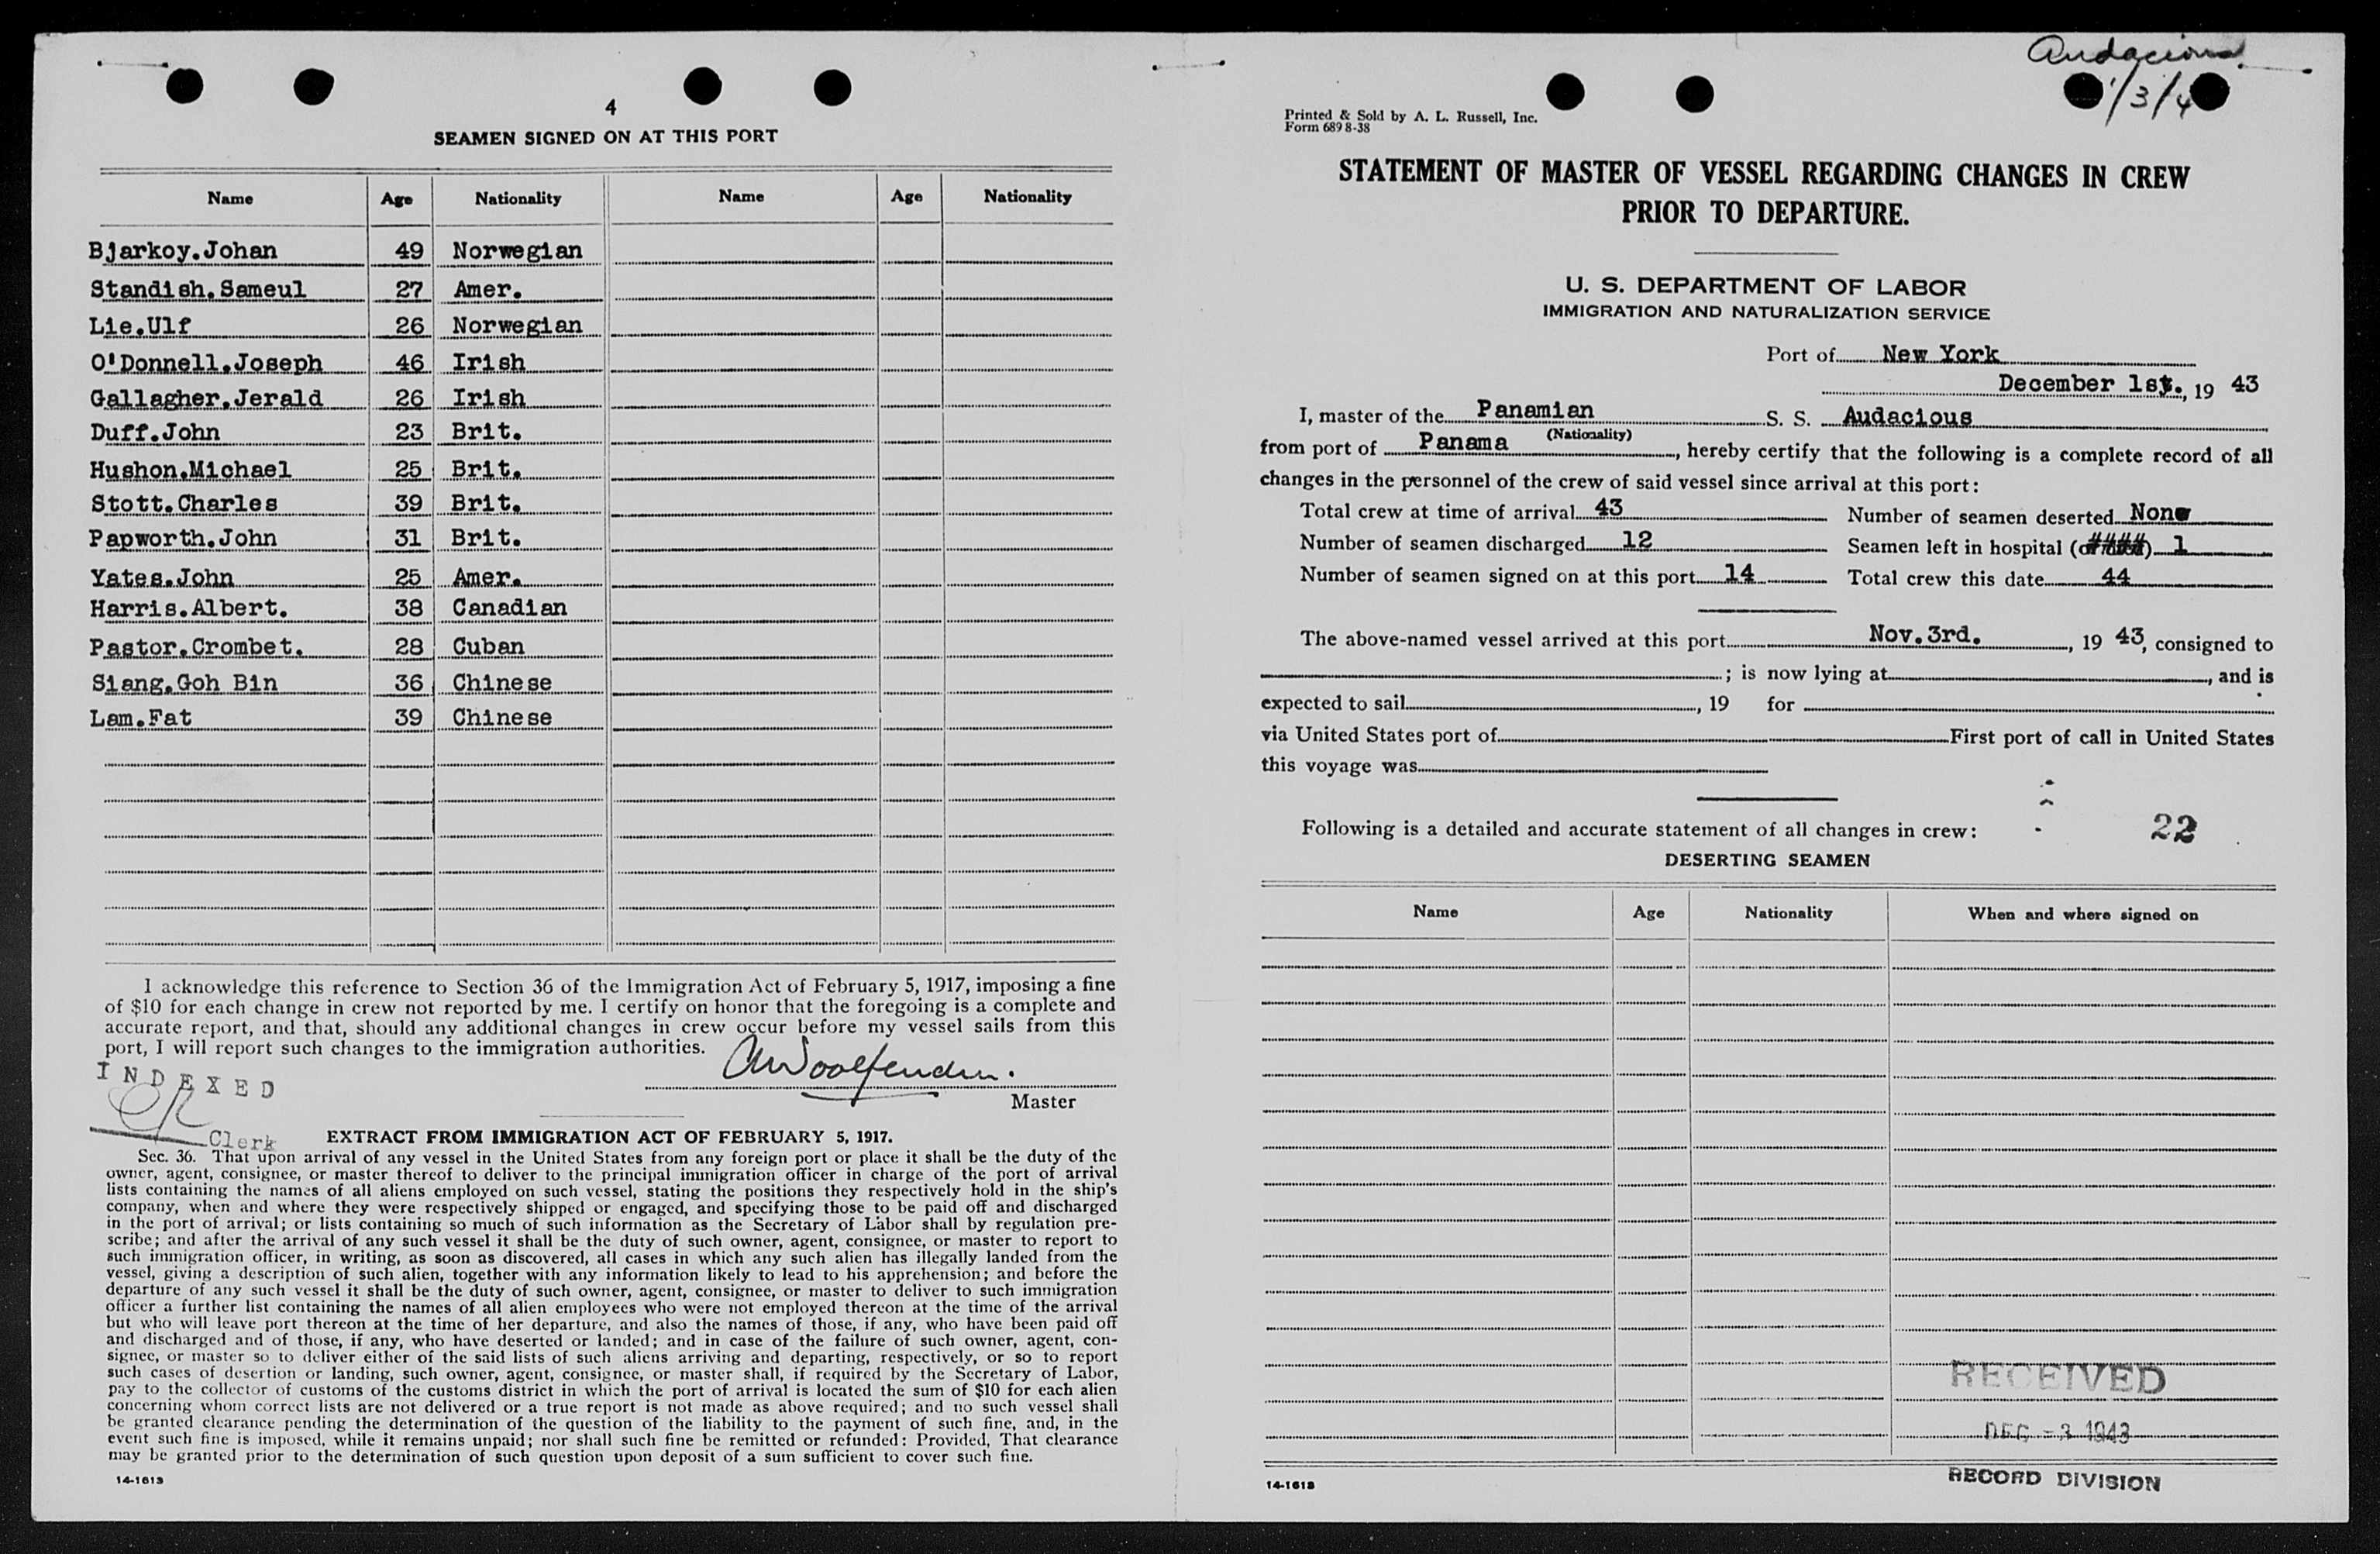 4
SEAMEN SIGNED ON AT THIS PORT
Name Age Nationality Name Age Nationality
Bjarkoy.Johan 49 Norwegian
Standish.Sameul 27 Amer.
Lie.Ulf 26 Norwegian
O'Donnell.Joseph 46 Irish
Gallagher.Jerald 26 Irish
Duff.John 23 Brit.
Hushon.Michael 25 Brit.
Stott.Charles 39 Brit.
Papworth.John 31 Brit.
Yates.John 25 Amer.
Harris.Albert. 38 Canadian
Pastor.Crombet. 28 Cuban
Siang.Goh Bin 36 Chinese
Lam.Fat 39 Chinese
I acknowledge this reference to Section 36 of the Immigration Act of February 5, 1917, imposing a fine
of $10 for each change in crew not reported by me. I certify on honor that the foregoing is a complete and
accurate report, and that, should any additional changes in crew occur before my vessel sails from this
port, I will report such changes to the immigration authorities.
INDEXED
Master
Clerk
EXTRACT FROM IMMIGRATION ACT OF FEBRUARY 5, 1917.
Sec. 36. That upon arrival of any vessel in the United States from any foreign port or place it shall be the duty of the
owner, agent, consignee, or master thereof to deliver to the principal immigration officer in charge of the port of arrival
lists containing the names of all aliens employed on such vessel, stating the positions they respectively hold in the ship's
company, when and where they were respectively shipped or engaged, and specifying those to be paid off and discharged
in the port of arrival; or lists containing so much of such information as the Secretary of Labor shall by regulation pre-
scribe; and after the arrival of any such vessel it shall be the duty of such owner, agent, consignee, or master to report to
such immigration officer, in writing, as soon as discovered, all cases in which any such alien has illegally landed from the
vessel, giving a description of such alien, together with any information likely to lead to his apprehension; and before the
departure of any such vessel it shall be the duty of such owner, agent, consignee, or master to deliver to such immigration
officer a further list containing the names of all alien employees who were not employed thereon at the time of the arrival
but who will leave port thereon at the time of her departure, and also the names of those, if any, who have been paid off
and discharged and of those, if any, who have deserted or landed; and in case of the failure of such owner, agent, con-
signee, or master so to deliver either of the said lists of such aliens arriving and departing, respectively, or so to report
such cases of desertion or landing, such owner, agent, consignee, or master shall, if required by the Secretary of Labor,
pay to the collector of customs of the customs district in which the port of arrival is located the sum of $10 for each alien
concerning whom correct lists are not delivered or a true report is not made as above required; and no such vessel shall
be granted clearance pending the determination of the question of the liability to the payment of such fine, and, in the
event such fine is imposed, while it remains unpaid; nor shall such fine be remitted or refunded: Provided, That clearance
may be granted prior to the determination of such question upon deposit of a sum sufficient to cover such fine.
14-1613
Audacious
Printed & Sold by A. L. Russell, Inc.
Form 689 8-38
STATEMENT OF MASTER OF VESSEL REGARDING CHANGES IN CREW
PRIOR TO DEPARTURE.
U. S. DEPARTMENT OF LABOR
IMMIGRATION AND NATURALIZATION SERVICE
Port of New York
December 1st., 19 43
I, master of the Panamian S. S. Audacious
(Nationality)
from port of Panama, hereby certify that the following is a complete record of all
changes in the personnel of the crew of said vessel since arrival at this port:
Total crew at time of arrival 43 Number of seamen deserted None
Number of seamen discharged 12 Seamen left in hospital ( ) 1
Number of seamen signed on at this port 14 Total crew this date 44
The above-named vessel arrived at this port Nov.3rd., 19 43, consigned to
; is now lying at , and is
expected to sail , 19 for
via United States port of First port of call in United States
this voyage was
Following is a detailed and accurate statement of all changes in crew: 22
DESERTING SEAMEN
Name Age Nationality When and where signed on
RECEIVED
DEC -3 1943
RECORD DIVISION
14-1613